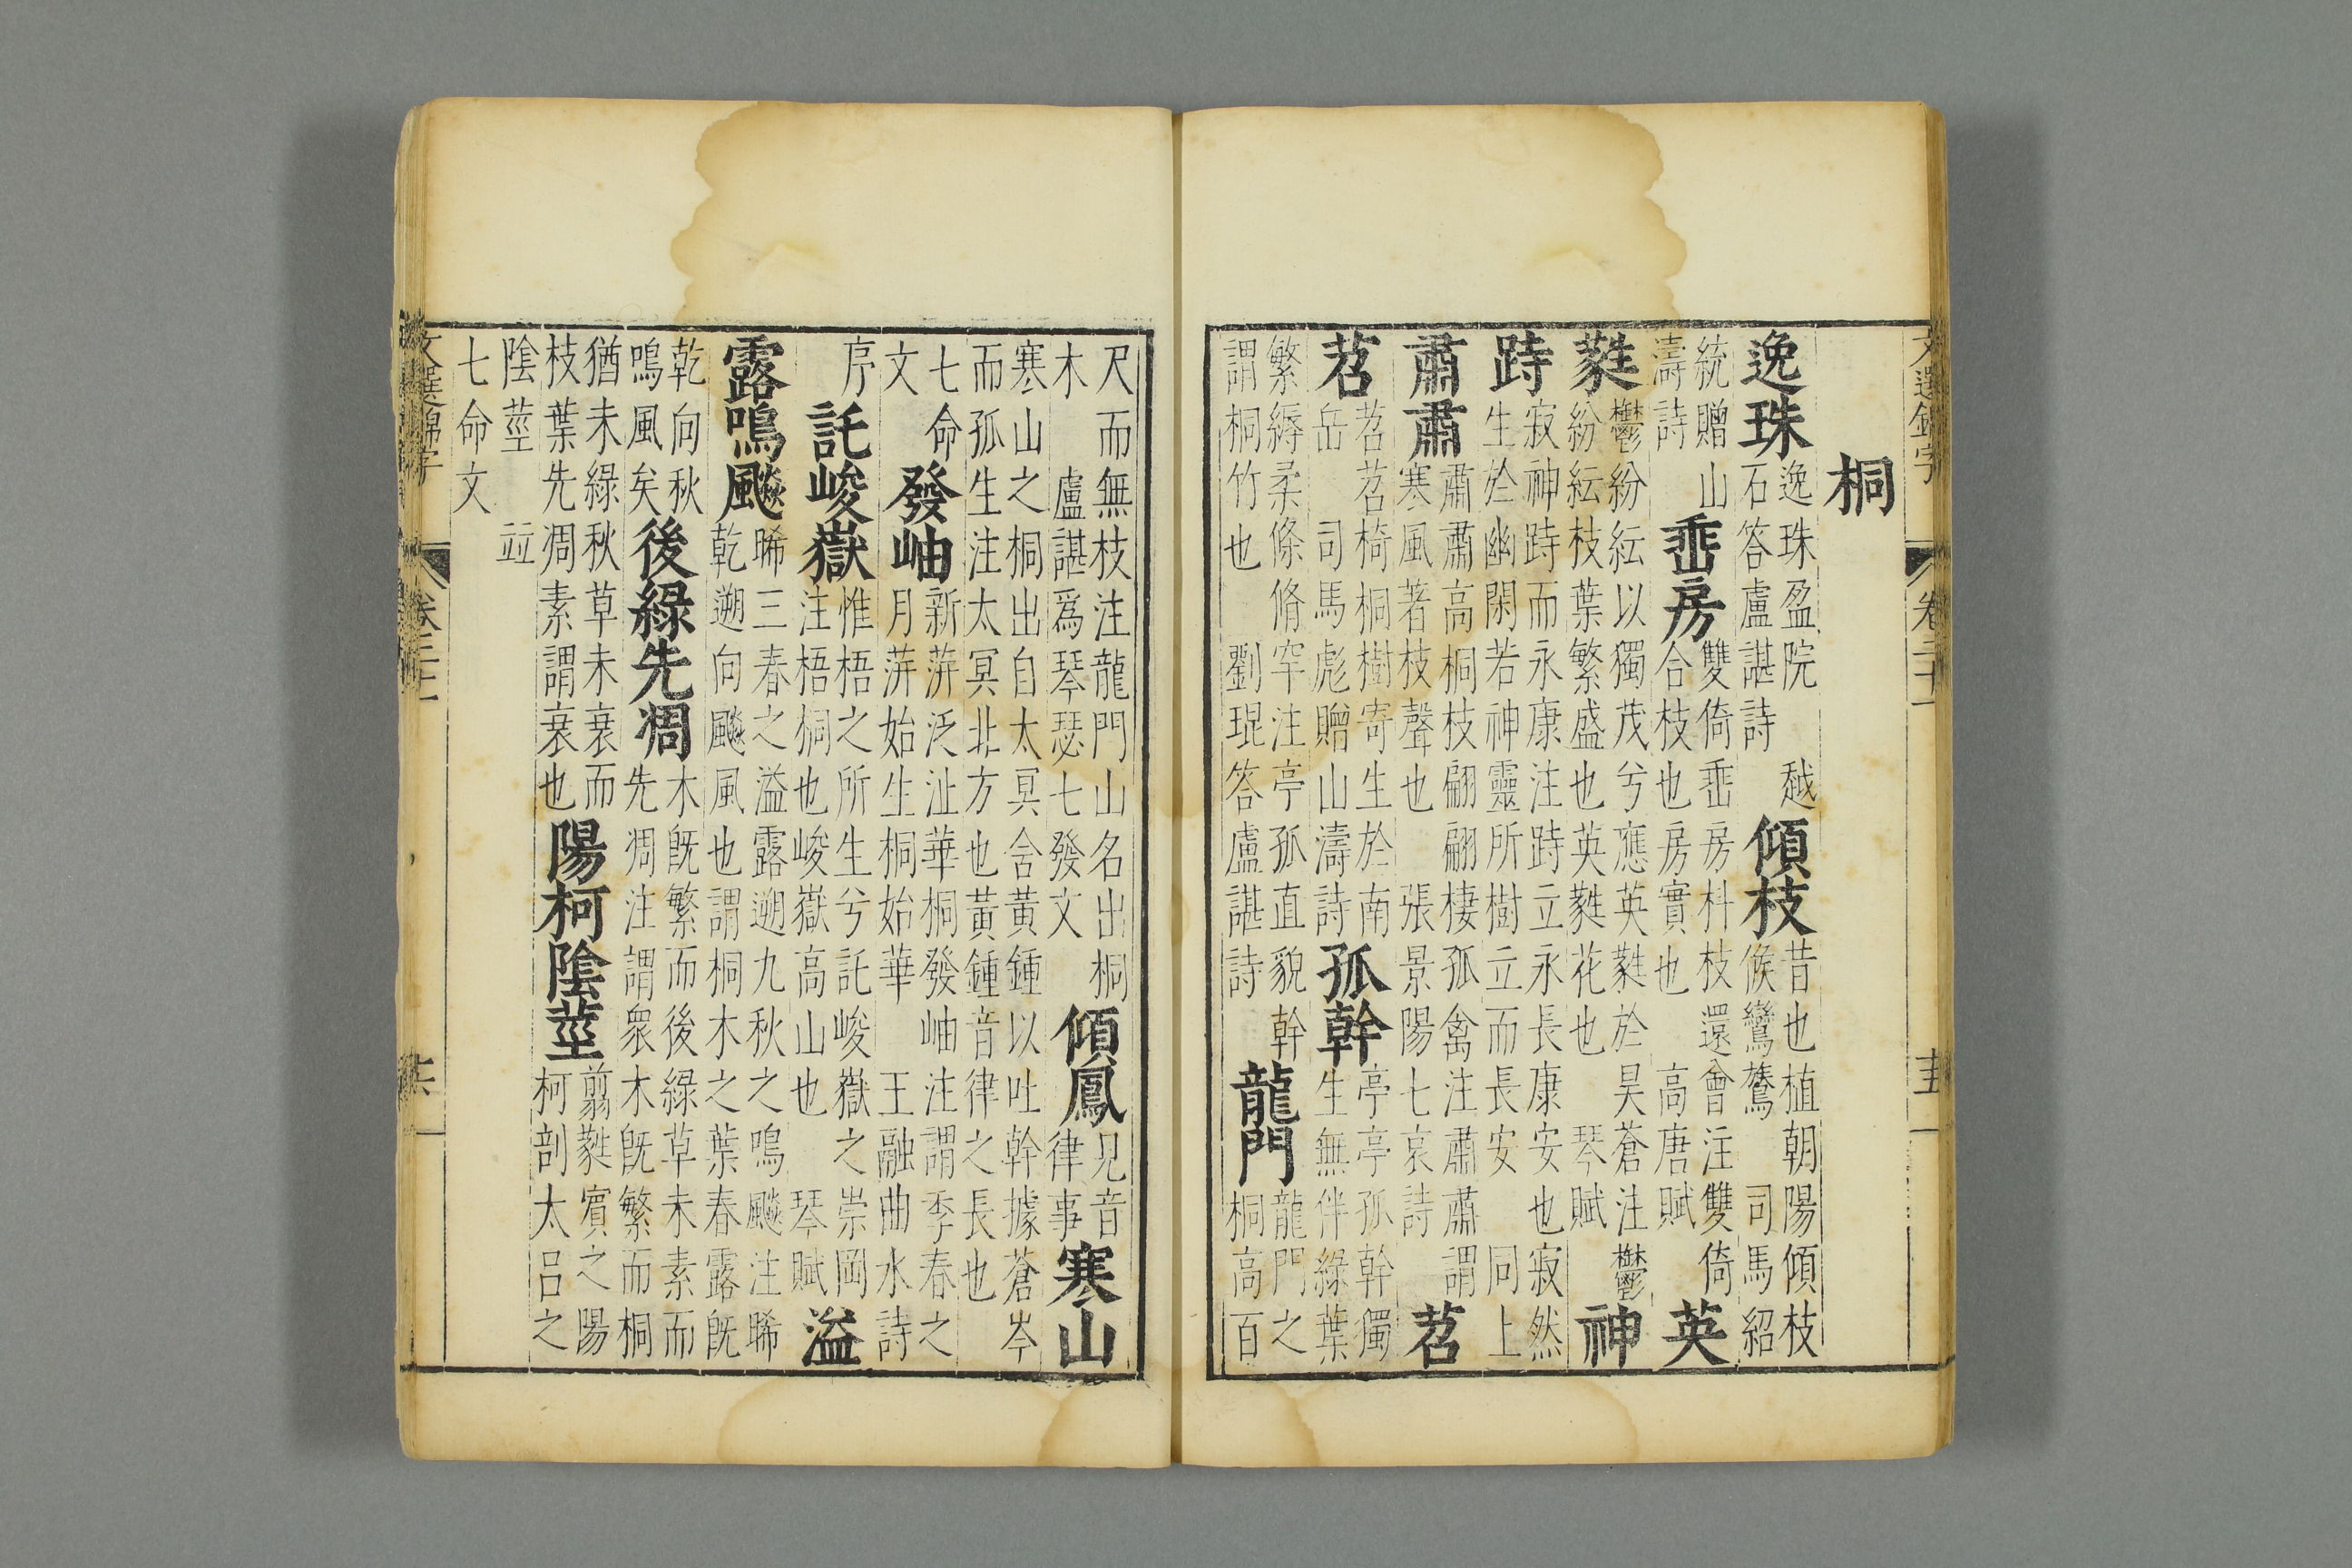 文選錦字 卷二十一
桐
逸珠
逸珠盈院 越
石答盧諶詩
傾枝
昔也植朝陽傾枝
候鸞鷟 司馬紹
統贈山
濤詩
垂房
雙倚垂房枓枝還會注雙倚
合枝也房實也 高唐賦
英
蕤
鬱紛紜以獨茂兮應英蕤於昊蒼注鬱
紛紜枝葉繁盛也英蕤花也 琴賦
神
跱
寂神跱而永康注跱立永長康安也寂然
生於幽閑若神靈所樹立而長安 同上
肅肅
肅肅高桐枝翩翩棲孤禽注肅肅謂
寒風著枝聲也 張景陽七哀詩
苕
苕
苕苕椅桐樹寄生於南
岳 司馬彪贈山濤詩
孤幹
亭亭孤幹獨
生無伴綠葉
繁縟柔條脩罕注亭孤直貌幹
謂桐竹也 劉琨答盧諶詩
龍門
龍門之
桐高百
尺而無枝注龍門山名出桐
木 盧諶爲琴瑟七發文
傾鳳
見音
律事
寒山
寒山之桐出自太冥含黃鍾以吐幹據蒼岑
而孤生注太冥北方也黃鍾音律之長也
七命
文
發岫
新蓱泛沚華桐發岫注謂季春之
月蓱始生桐始華 王融曲水詩
序
託峻嶽
惟梧之所生兮託峻嶽之崇岡
注梧桐也峻嶽高山也 琴賦
溢
露鳴飈
晞三春之溢露遡九秋之鳴飈注晞
乾遡向飈風也謂桐木之葉春露既
乾向秋
鳴風矣
後綠先凋
木既繁而後綠草未素而
先凋注謂衆木既繁而桐
猶未綠秋草未衰而
枝葉先凋素謂衰也
陽柯陰莖
剪蕤賓之陽
柯剖太呂之
陰莖 並
七命文
文選錦字 卷二十一